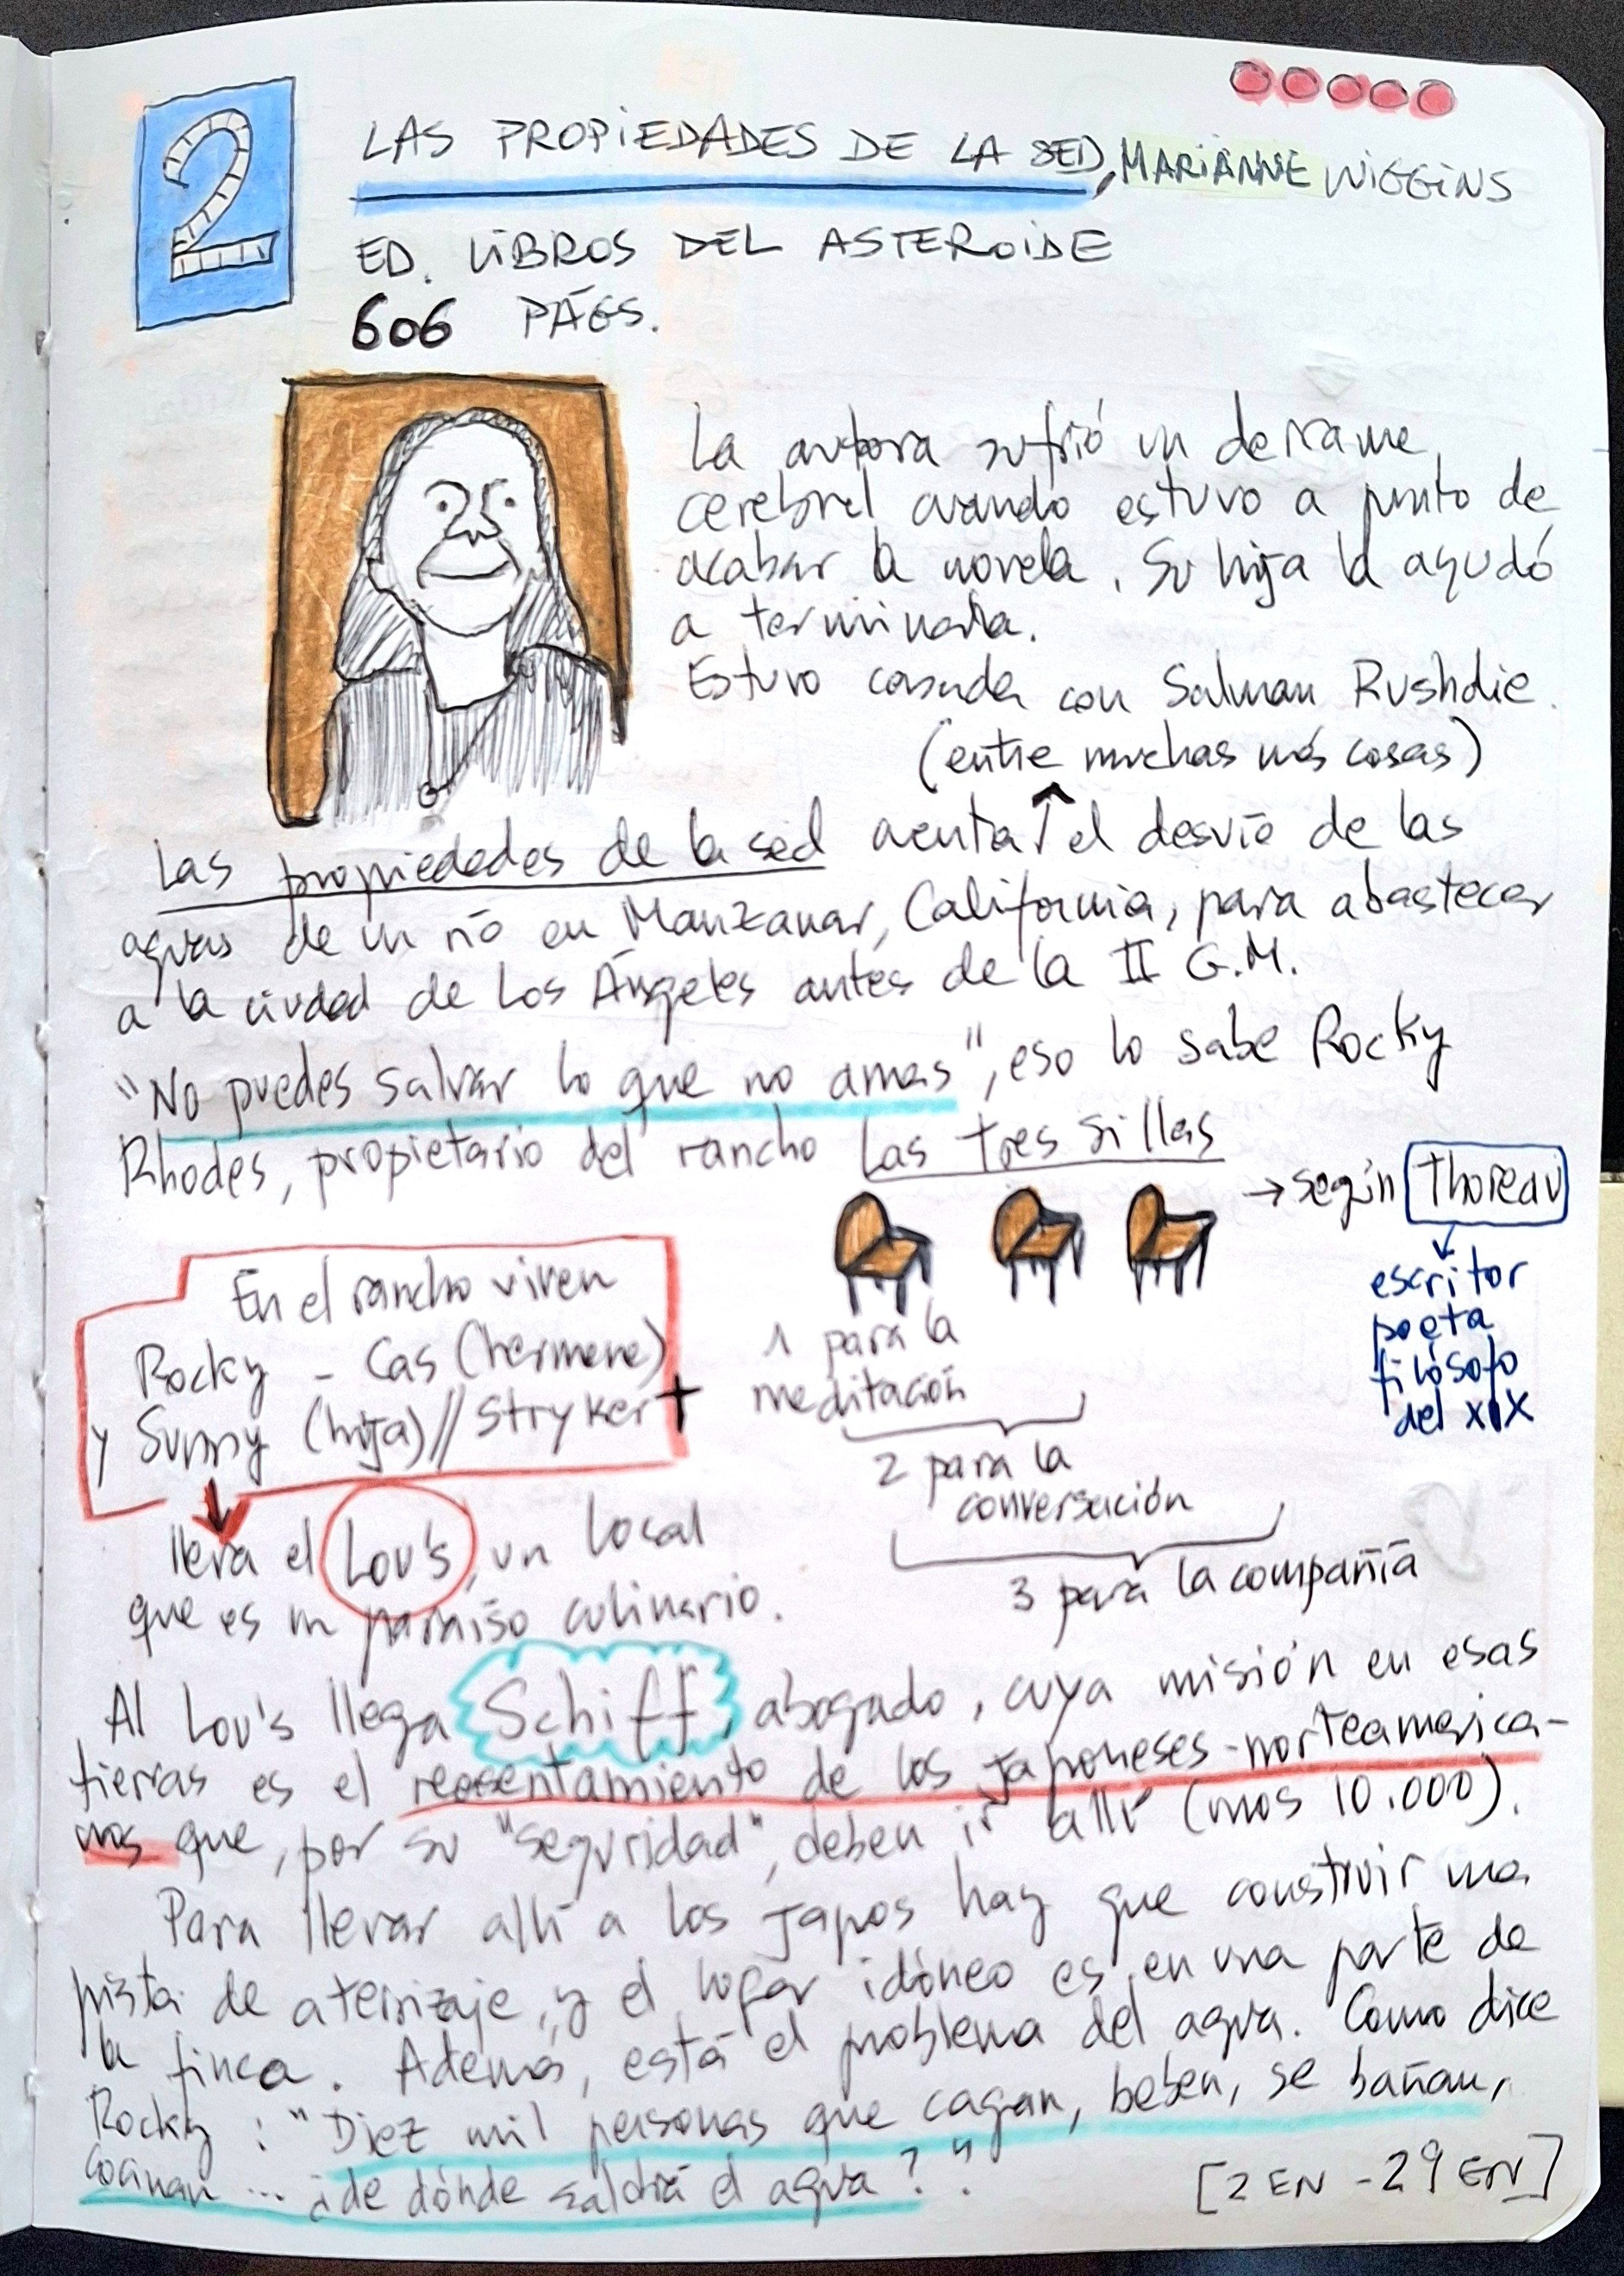 2
LAS PROPIEDADES DE LA SED, MARIANNE WIGGINS
ED. LIBROS DEL ASTEROIDE
606 PÁGS.
La autora sufrió un derrame
cerebral cuando estuvo a punto de
acabar la novela. Su hija la ayudó
a terminarla.
Estuvo casada con Salman Rushdie.
(entre muchas más cosas)
Las propiedades de la sed cuenta ↑ el desvío de las
aguas de un río en Manzanar, California, para abastecer
a la ciudad de Los Ángeles antes de la II G.M.
"No puedes salvar lo que no amas", eso lo sabe Rocky
Rhodes, propietario del rancho Las tres sillas
→ según Thoreau
escritor
poeta
filósofo
del XIX
1 para la
meditación
2 para la
conversación
3 para la compañía
En el rancho viven
Rocky - Cas (hermana)
y Sunny (hija) // Stryker +
lleva el Lou's, un local
que es un paraíso culinario.
Al Lou's llega Schiff, abogado, cuya misión en esas
tierras es el reasentamiento de los japoneses-norteamerica-
nos que, por su "seguridad", deben ir allí (unos 10.000).
Para llevar allí a los japos hay que construir una
pista de aterrizaje, y el lugar idóneo es en una parte de
la finca. Además, está el problema del agua. Como dice
Rocky: "Diez mil personas que cagan, beben, se bañan,
cocinan... ¿de dónde saldrá el agua?".
[2 EN - 29 EN]